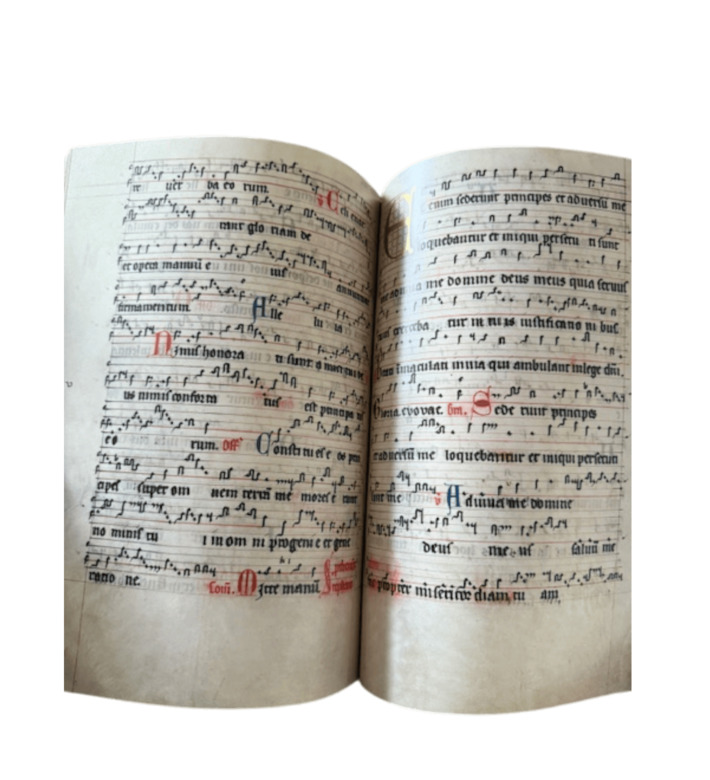 uer ba eo rum. C eli enar
rant glo riam de
et opera manuū e ius annuntiat
firmamentum. A lle lu ia
N imis honora ti sunt amici tui de
us nimis conforta tus est principa tus
eo rum. off C onstitu es e os prin
cipes super om nem terrā me mores e runt
no minis tu i in om ni progeni e et gene
ratio ne. com. M itte manū
E tenim sederunt principes et adversū me
loquebantur et iniqui persecu ti sunt
me adiuva me domine deus meus quia servus
tuus exerceba tur in tu is iustificatio ni bus.
Beati immaculati in via qui ambulant in lege dn̄i.
Gloria. evovae. Gr. S ede runt principes
et adversū me loquebantur et iniqui persecuti
sunt me v A diuua me domine
deus me us salvū me
fac propter misericor diam tu am,